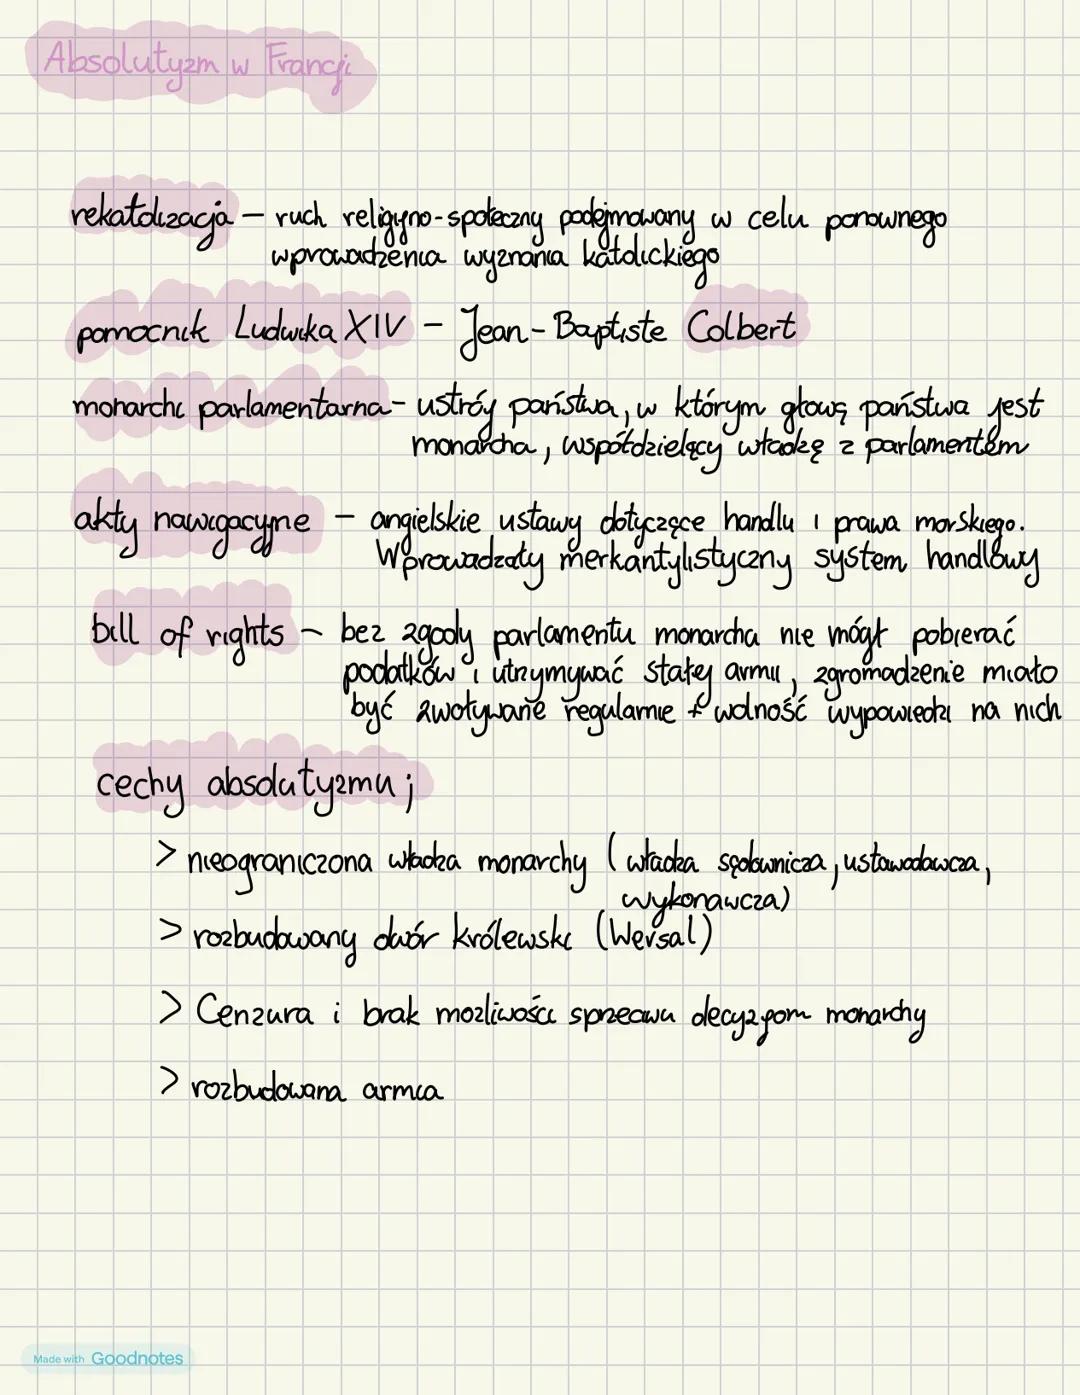 Absolutyzm w Francji
rekatolizacja – ruch religijno-społeczny podejmowany w celu ponownego
wprowadzenia wyznania katolickiego
pomocnik Ludwika XIV – Jean-Baptiste Colbert
monarchi parlamentarna – ustrój państwa, w którym głową państwa jest
monarcha, współdzielący władzę z parlamentem
akty nawigacyjne – angielskie ustawy dotyczące handlu i prawa morskiego.
Wprowadzały merkantylistyczny system handlowy
bill of rights – bez zgody parlamentu monarcha nie mógł pobierać
podatków i utrzymywać stałej armii, zgromadzenie miało
być zwoływane regularnie + wolność wypowiedzi na nich
cechy absolutyzmu;
> nieograniczona władza monarchy (władza sądownicza, ustawodawcza,
wykonawcza)
> rozbudowany dwór królewski (Wersal)
> Cenzura i brak mozliwości sprzeciwu decyzjom monarchy
> rozbudowana armia
Made with Goodnotes